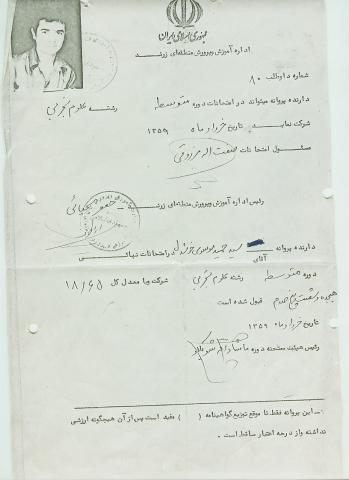 جمهوری اسلامی ایران
اداره آموزش وپرورش منطقه‌ای زرند
شماره داوطلب ۸۰
دارنده پروانه میتواند در امتحانات دوره متوسطه رشته علوم تجربی
شرکت نماید تاریخ خرداد ماه ۱۳۵۹
مسئول امتحانات
رئیس اداره آموزش وپرورش منطقه‌ای زرند
دارنده پروانه آقای سید حمید موسوی در امتحانات نهائی
دوره متوسطه رشته علوم تجربی شرکت وبا معدل کل ۱۸/۶۵
هیجده و شصت و پنج صدم قبول شده است
تاریخ خرداد ماه ۱۳۵۹
رئیس هیئت ممتحنه دوره
۱ــ این پروانه فقط تا موقع توزیع گواهینامه ( ) مفید است پس از آن هیچگونه ارزشی
نداشته و از درجه اعتبار ساقط است .